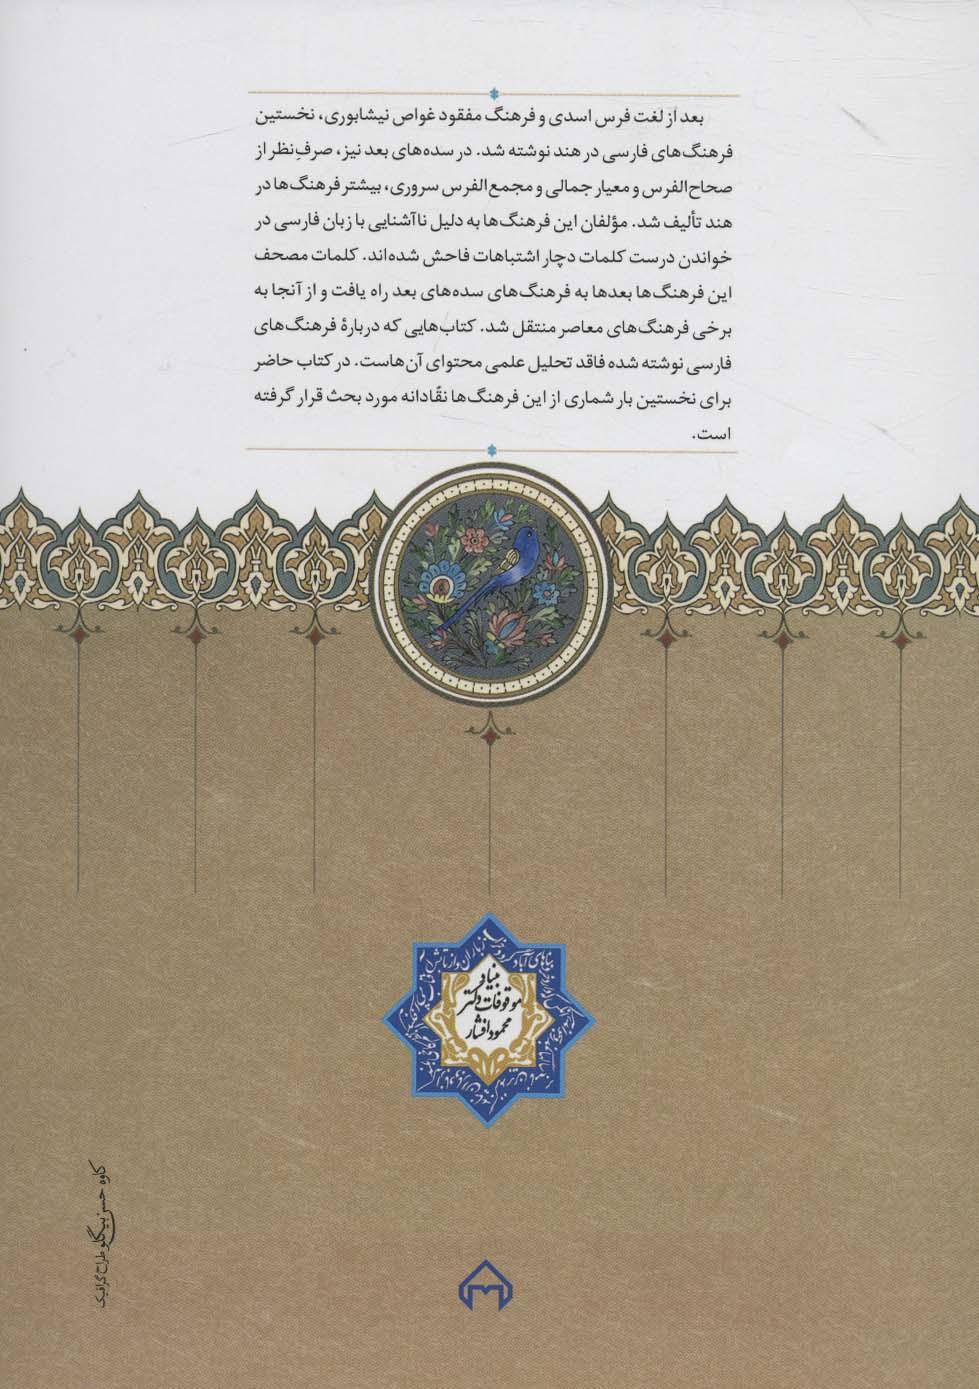 بعد از لغت فرس اسدی و فرهنگ مفقود غواص نیشابوری، نخستین
فرهنگ‌های فارسی در هند نوشته شد. در سده‌های بعد نیز، صرفِ‌نظر از
صحاح‌الفرس و معیار جمالی و مجمع‌الفرس سروری، بیشتر فرهنگ‌ها در
هند تألیف شد. مؤلفان این فرهنگ‌ها به دلیل ناآشنایی با زبان فارسی در
خواندن درست کلمات دچار اشتباهات فاحش شده‌اند. کلمات مصحف
این فرهنگ‌ها بعدها به فرهنگ‌های سده‌های بعد راه یافت و از آنجا به
برخی فرهنگ‌های معاصر منتقل شد. کتاب‌هایی که دربارهٔ فرهنگ‌های
فارسی نوشته شده فاقد تحلیل علمی محتوای آن‌هاست. در کتاب حاضر
برای نخستین بار شماری از این فرهنگ‌ها نقّادانه مورد بحث قرار گرفته
است.
بنیاد
موقوفات دکتر
محمود افشار
کاوه حسن‌بیگلو طراح گرافیک